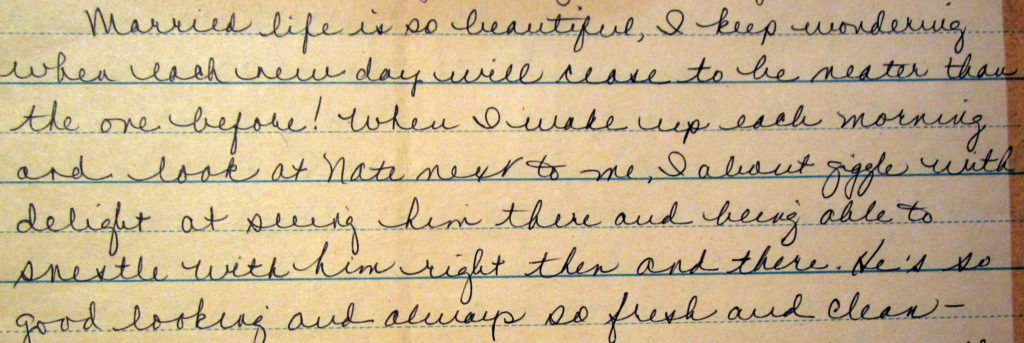 Married life is so beautiful, I keep wondering
when each new day will cease to be neater than
the one before! When I wake up each morning
and look at Nate next to me, I about giggle with
delight at seeing him there and being able to
snestle with him right then and there. He's so
good looking and always so fresh and clean—